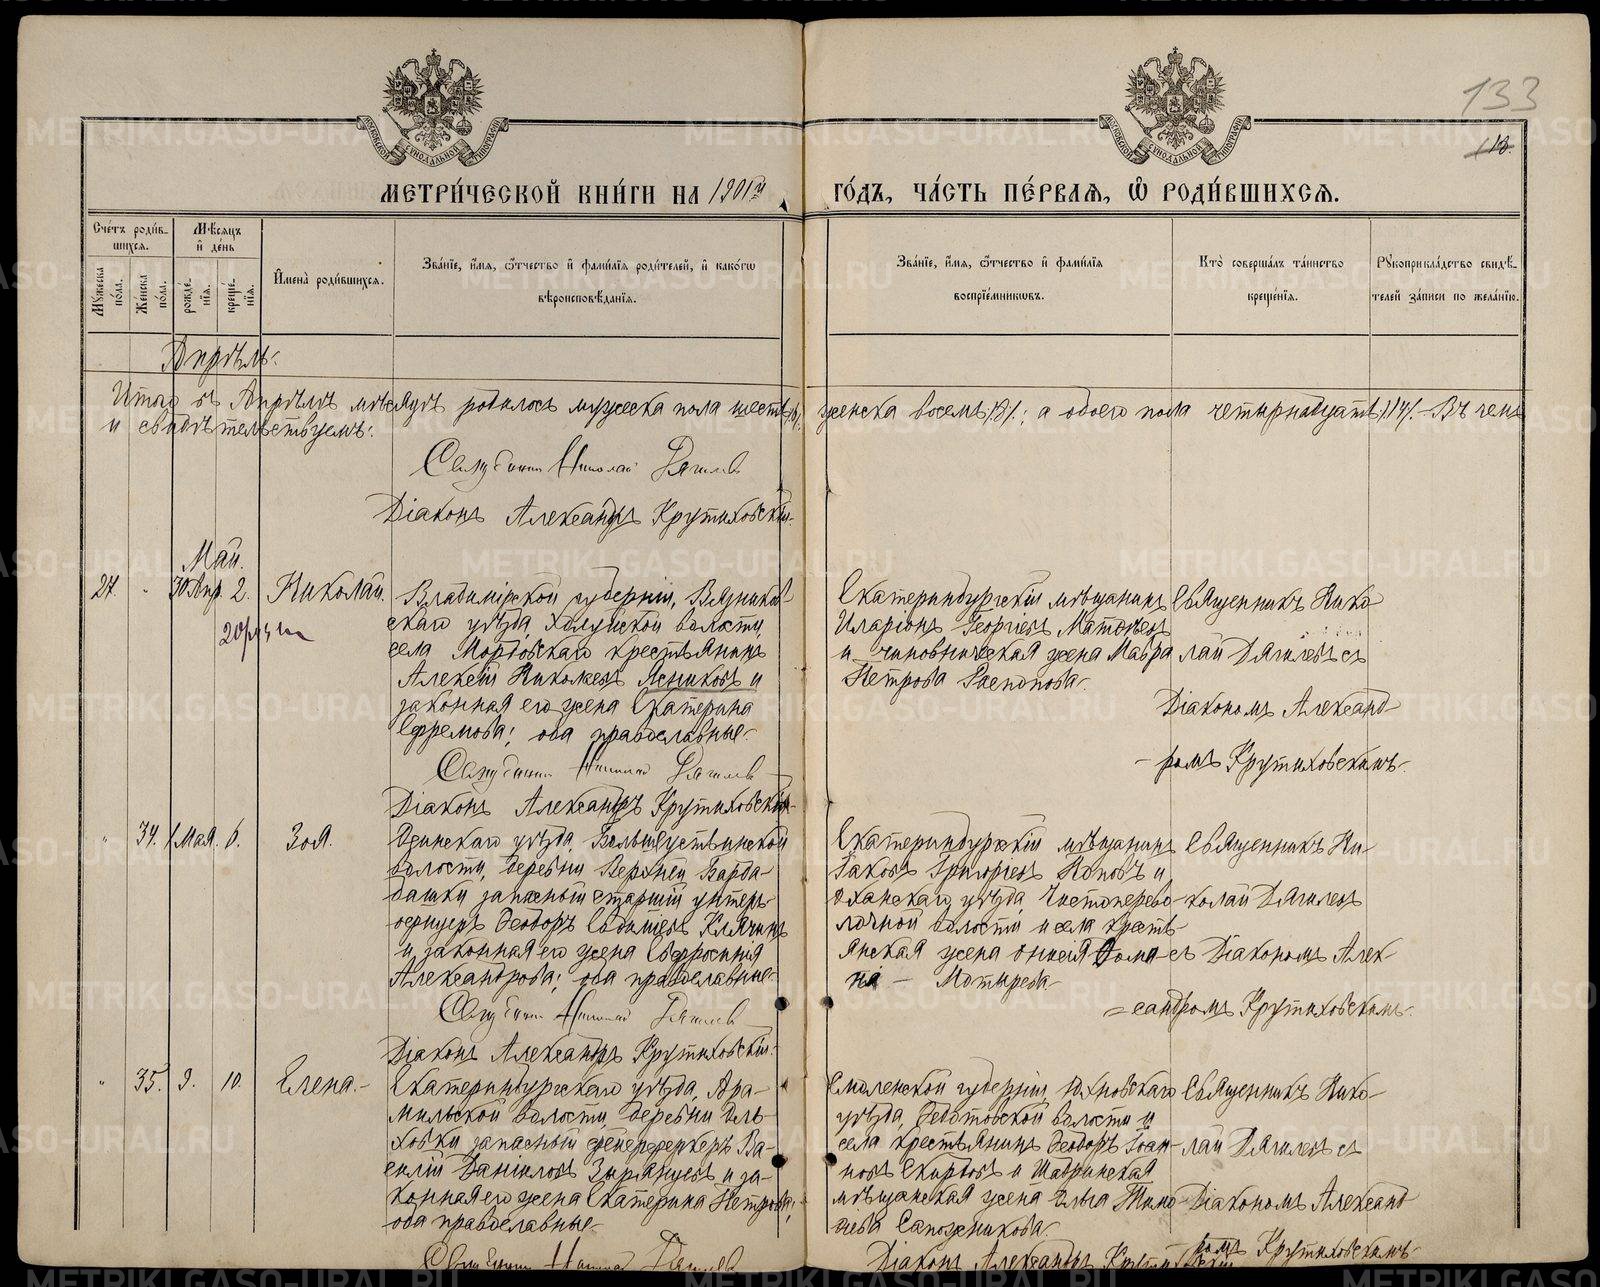 133
13.
МЕТРИ́ЧЕСКОЙ КНИ́ГИ НА 1901й ГО́ДЪ, ЧА́СТЬ ПЕ́РВАѦ, Ѡ҆ РОДИ́ВШИХСѦ.
Сче́тъ роди́в-
шихсѧ.
Мꙋжеска по́ла.
Же́нска по́ла.
Мѣ́сѧцъ и҆ де́нь
рожде́-
нїѧ.
креще́-
нїѧ.
И҆мена̀ роди́вшихсѧ.
Зва́нїе, и҆́мѧ, ѻ҆́тчество и҆ фамн́лїѧ роди́телей, и҆ како́гѡ
вѣроисповѣ́данїѧ.
Зва́нїе, и҆́мѧ, ѻ҆́тчество и҆ фами́лїѧ
воспрїе́мникѡвъ.
Кто̀ соверша́лъ та́инство
креще́нїѧ.
Рꙋкоприкла́дство свидѣ́-
телей за́писи по жела́нїю.
Апрѣль.
Итого въ Апрѣлѣ мѣсяцѣ родилось мужеска пола шесть /6/, женска восемь /8/; а обоего пола четырнадцать /14/. Въ чемъ
и свидѣтельствуемъ:
Священникъ Николай Дягилев
Діаконъ Александръ Крутиховскій.
Май.
27. " 30 Апр. 2. Николай.
Владимірской губерніи, Вязников-
скаго уѣзда, Холуйской волости,
села Мордовскаго крестьянинъ
Алексѣй Николаевъ Лениковъ и
законная его жена Екатерина
Ефремова; оба православные.
Екатеринбургскій мѣщанинъ
Иларіонъ Георгіевъ Матвѣевъ
и чиновническая жена Мавра
Петрова Распопова.
Священникъ Нико-
лай Дягилевъ съ
Діакономъ Александ-
ромъ Крутиховскимъ.
Священникъ Николай Дягилев
Діаконъ Александръ Крутиховскій.
" 34. 1 Мая. 6. Зоя.
Осинскаго уѣзда, Большеустьинской
волости, деревни Верхней Барда-
башки запасный старшій унтеръ-
офицеръ Ѳеодоръ Клячинъ
и законная его жена Евфросинія
Александрова; оба православные.
Екатеринбургскій мѣщанинъ
Іаковъ Григоріевъ Поповъ и
Оханскаго уѣзда, Чистоперево-
лочной волости и села кресть-
янская жена Онисія Ѳоми-
на — Мотырева.
Священникъ Ни-
колай Дягилевъ
съ Діакономъ Алек-
сандромъ Крутиховскимъ.
Священникъ Николай Дягилев
Діаконъ Александръ Крутиховскій.
" 35. 9. 10. Елена.
Екатеринбургскаго уѣзда, Ара-
мильской волости, деревни Коль-
ховки запасный фейерверкеръ Ва-
силій Даниловъ Зырянцевъ и за-
конная его жена Екатерина Петрова;
оба православные.
Смоленской губерніи, Юхновскаго
уѣзда, Ѳедотовской волости и
села крестьянинъ Ѳеодоръ Іоан-
новъ и Шадринская
мѣщанская жена Тимо-
ѳеева Сапожникова.
Священникъ Нико-
лай Дягилевъ съ
Діакономъ Александ-
ромъ Крутиховскимъ.
Священникъ Николай Дягилев
Діаконъ Александръ